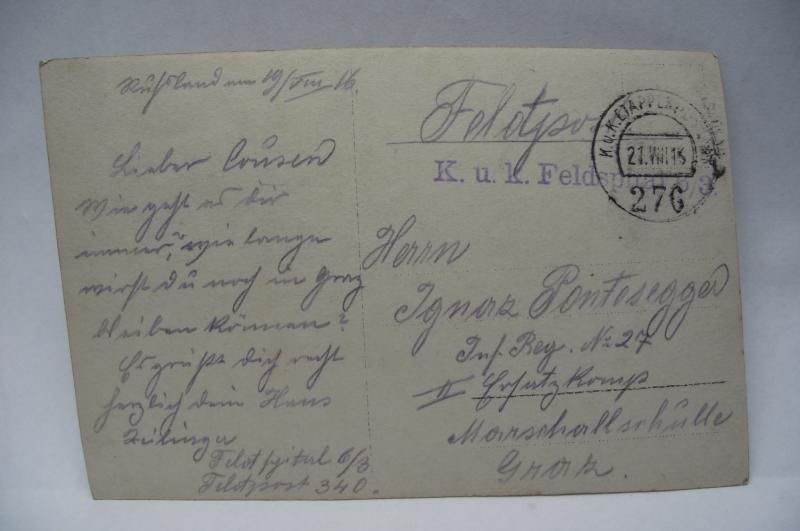 Rußland am 19/VIII 16.
Lieber Cousin
Wie geht es dir
immer, wie lange
wirst du noch in Graz
bleiben können?
Es grüßt dich recht
herzlich dein Hans
Zeilinger
Feldspital 6/3
Feldpost 340.
Feldpo
K. u. k. Feldspital 6/3
K.u.K. ETAPPEN
21.VIII.16
276
Herrn
Ignaz Pontesegger
Inf. Reg. No 27
II Ersatzkomp
Marschallschulle
Graz.